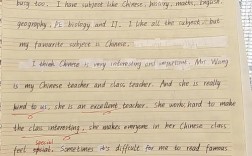 busy too. I have subject like Chinese, biology, maths, English,
geography, P.E biology and IT. I like all the subject but
my favourite subject is Chinese.
I think Chinese is very interesting and important. Mr Wang
is my Chinese teacher and class teacher. And she is really
kind to us, she is an excellent teacher. She works hard to make
the class interesting, she makes everyone in her Chinese class
special
feel special. Sometimes it's difficult for me to read famous